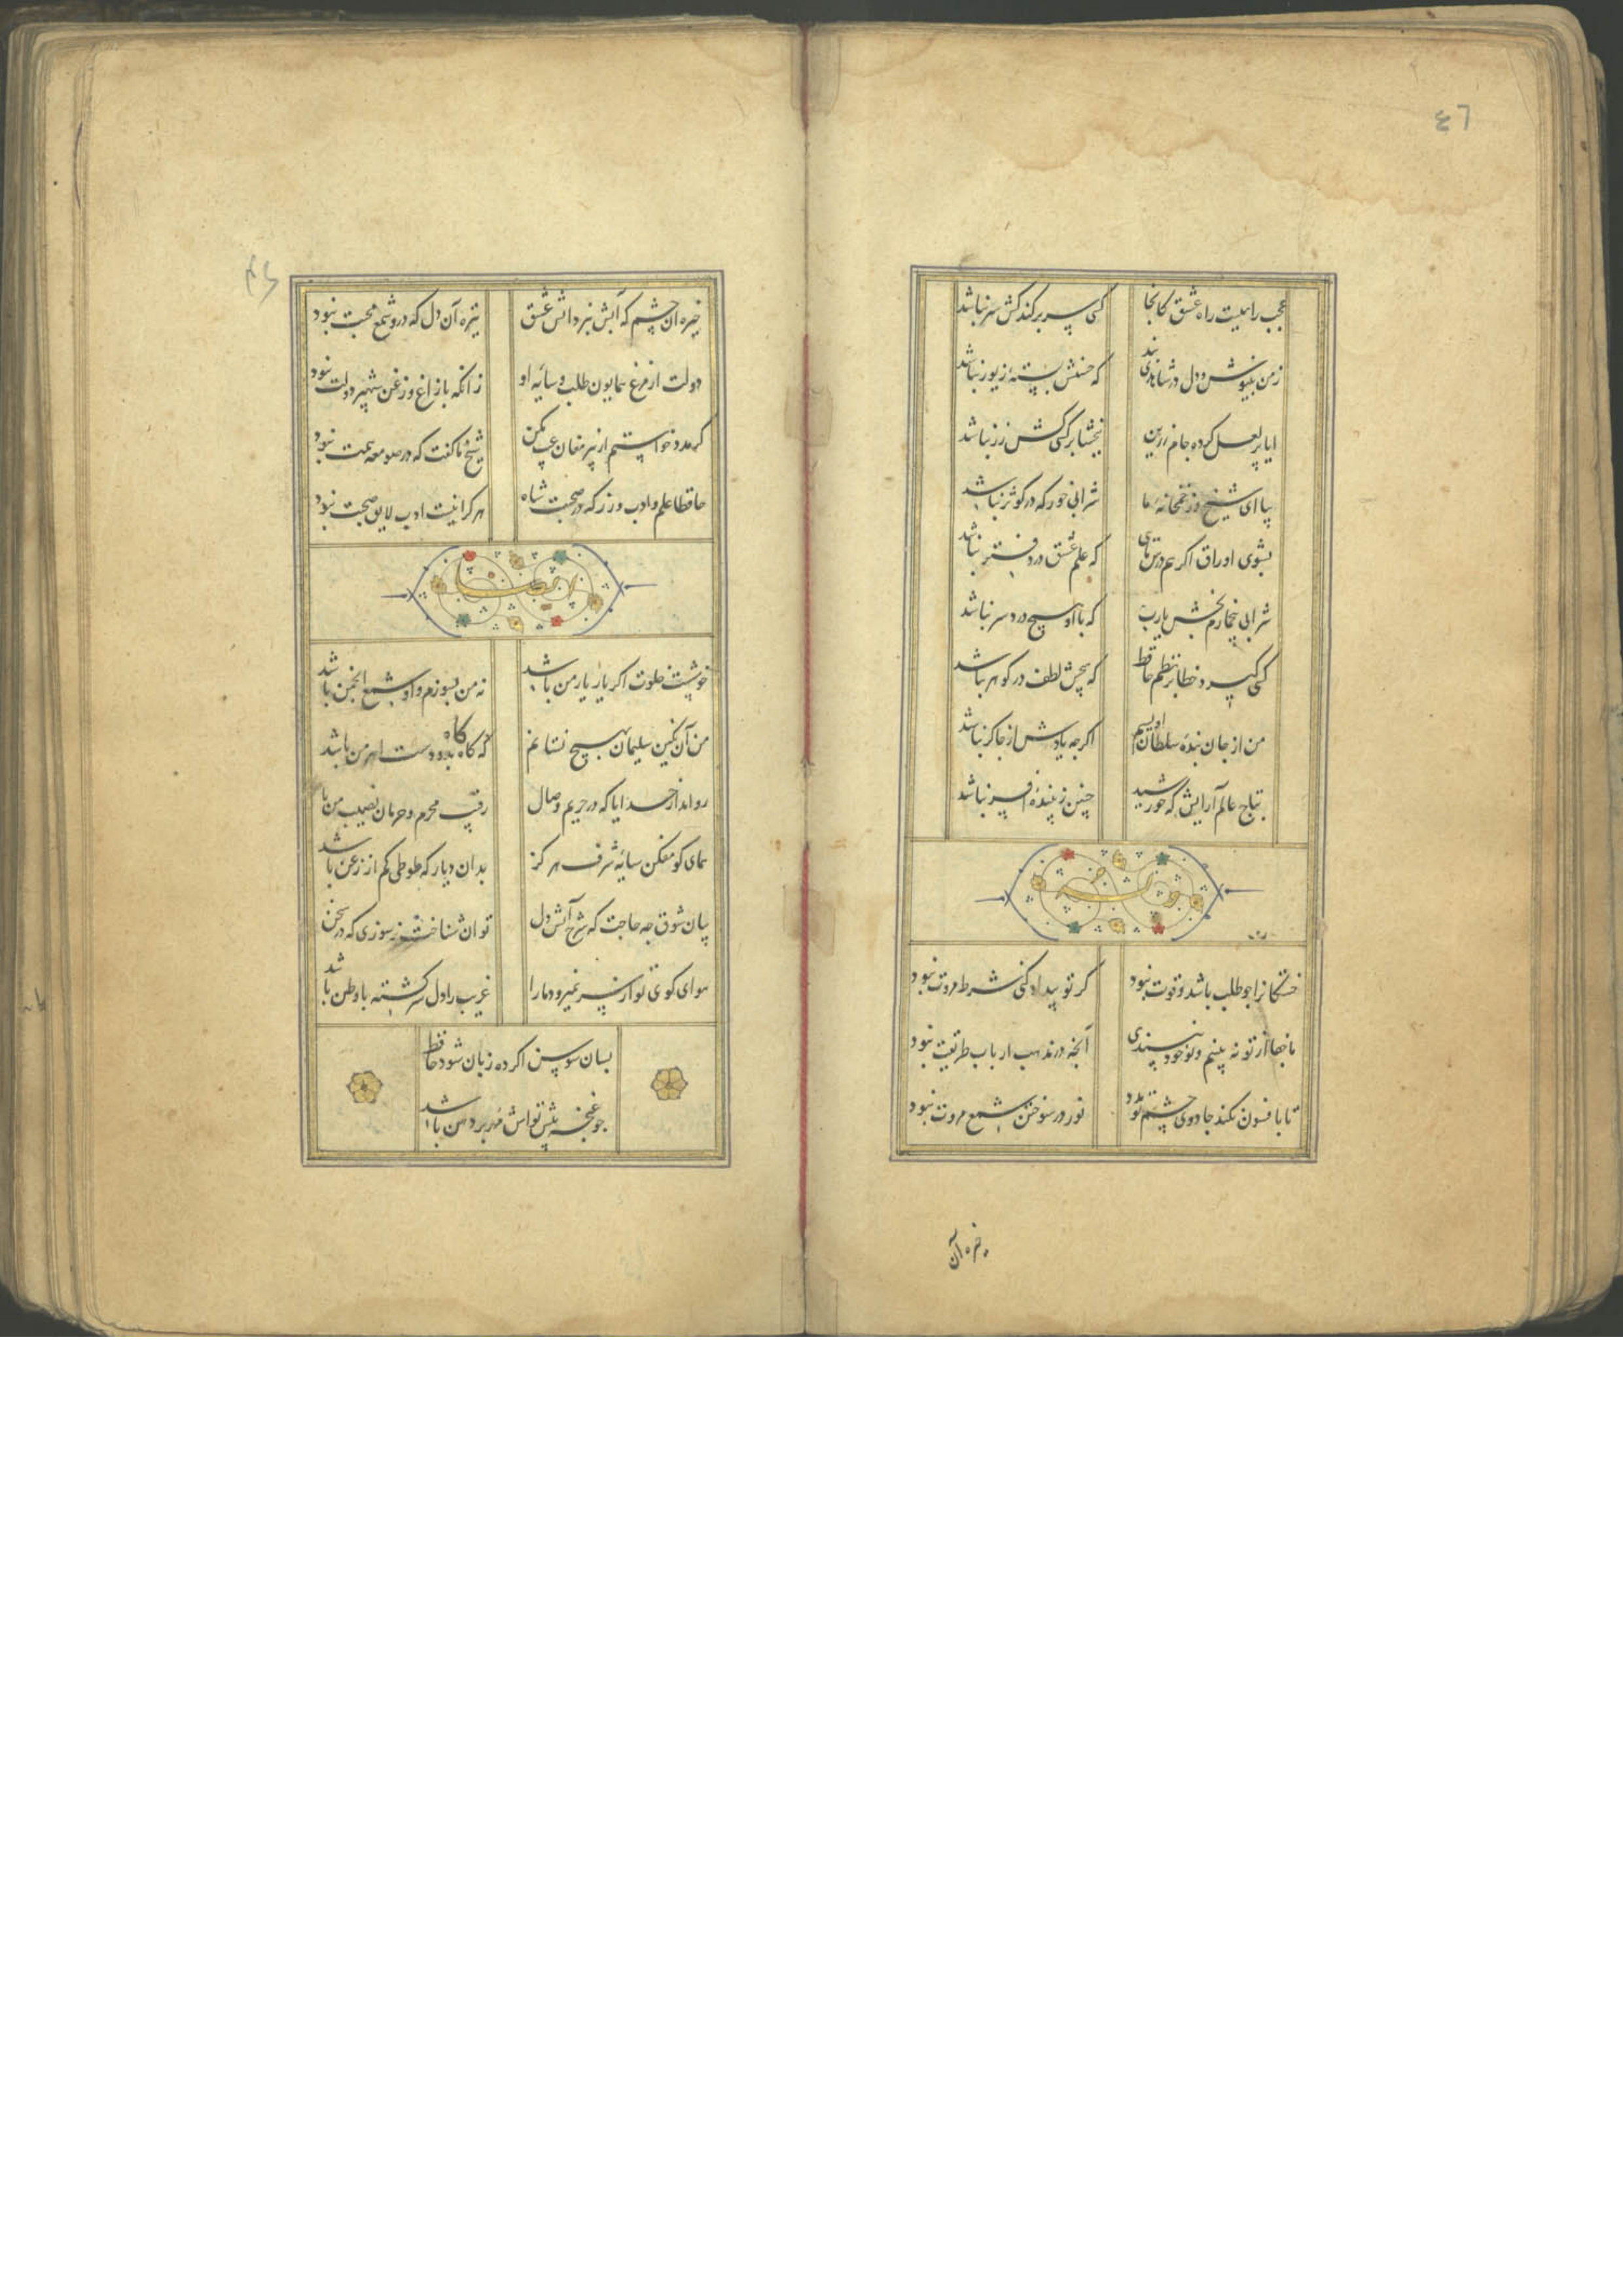 ٤٦
عجب راهیست راه عشق کانجا
کسی سر بر کند کش سر نباشد
ز من بنیوش و دل در شاهدی بند
که حسنش بستهٔ زیور نباشد
ایا پر لعل کرده جام زرین
ببخشا بر کسی کش زر نباشد
بیا ای شیخ و ز خمخانهٔ ما
شرابی خور که در کوثر نباشد
بشوی اوراق اگر هم درس مایی
که علم عشق در دفتر نباشد
شرابی بی خمارم بخش یارب
که با او هیچ درد سر نباشد
کسی گیرد خطا بر نظم حافظ
که هیچش لطف در گوهر نباشد
من از جان بندهٔ سلطان اویسم
اگرچه یادش از چاکر نباشد
بتاج عالم آرایش که خورشید
چنین زیبندهٔ افسر نباشد
خستگانرا چو طلب باشد و قوت نبود
گر تو بیداد کنی شرط مروت نبود
ما جفا از تو نه بینیم و تو خود نپسندی
آنچه در مذهب ارباب طریقت نبود
تا بافسون نکند جادوی چشم تو مدد
نور در سوختن شمع مروت نبود
خیره آن
خیره آن چشم که آبش نبرد آتش عشق
تیره آن دل که درو شمع محبت نبود
دولت از مرغ همایون طلب و سایهٔ او
زانکه با زاغ و زغن شهپر دولت نبود
گر مدد خواستم از پیر مغان عیب مکن
شیخ ما گفت که در صومعه همت نبود
حافظا علم و ادب ورز که در صحبت شاه
هر کرا نیست ادب لایق صحبت نبود
ایضا
خوشست خلوت اگر یار یار من باشد
نه من بسوزم و او شمع انجمن باشد
من آن نگین سلیمان بهیچ نستانم
که گاه گاه برو دست اهرمن باشد
روا مدار خدایا که در حریم وصال
رقیب محرم و حرمان نصیب من با
همای گو مفکن سایهٔ شرف هرگز
بدان دیار که طوطی کم از زغن باشد
بیان شوق چه حاجت که شرح آتش دل
توان شناخت ز سوزی که در سخن
هوای کوی تو از سر نمیرود ما را
غریب را دل سرگشته با وطن باشد
بسان سوسن اگر ده زبان شود حافظ
چو غنچه پیش تواش مهر بر دهن باشد